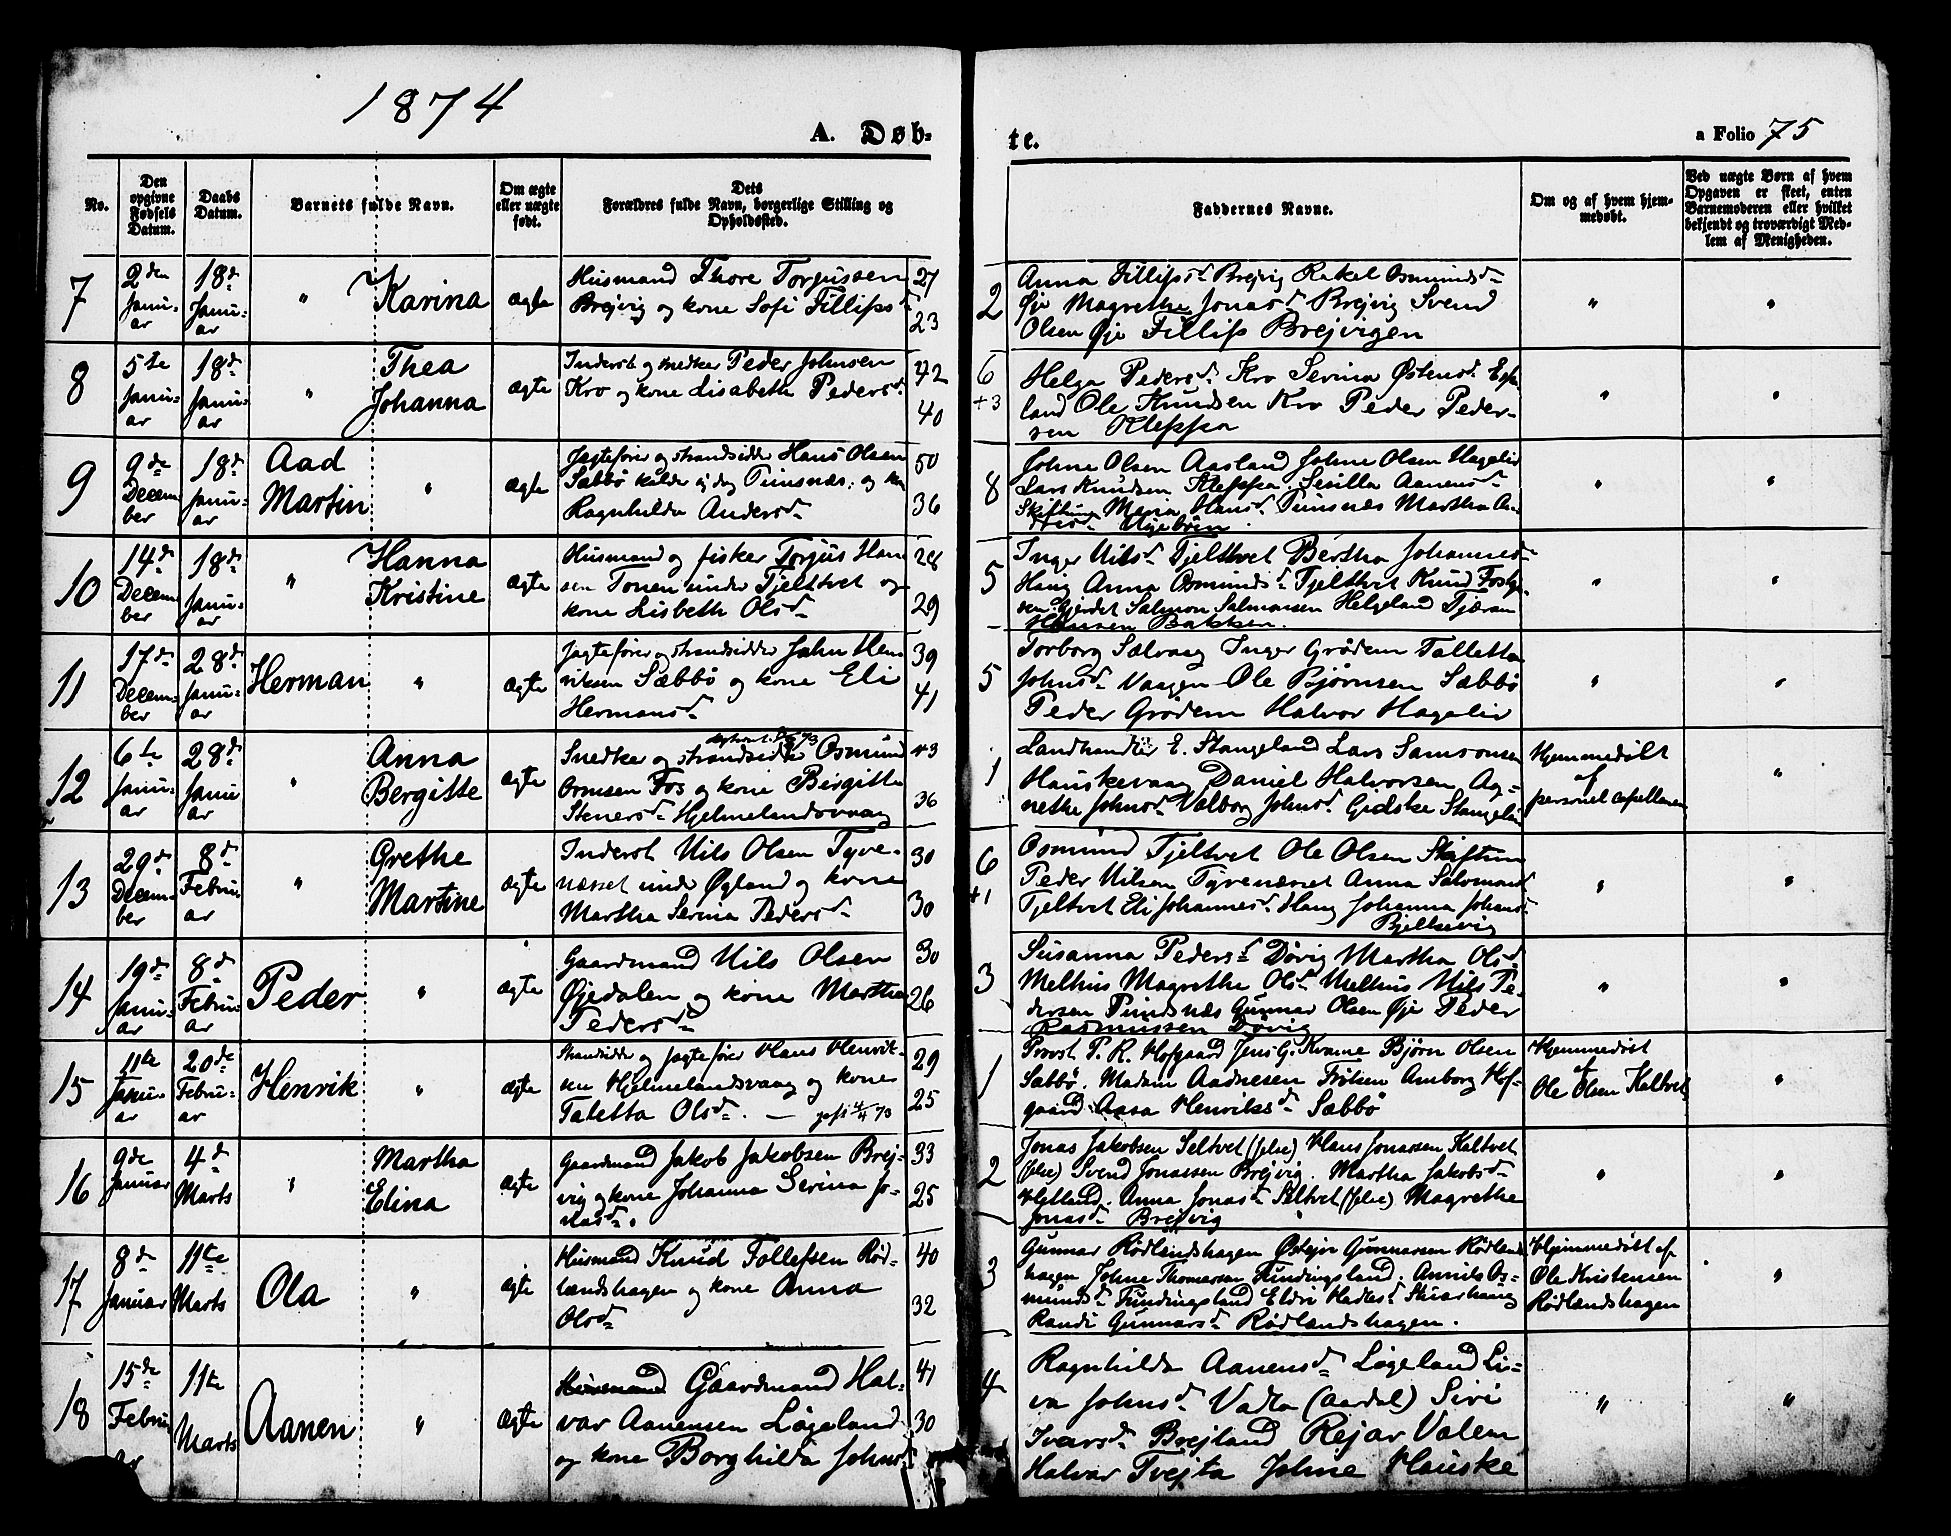 1874
A. Døb-
te.
a Folio 75
No.
Den
opgivne
Fødsels
Datum.
Daabs
Datum.
Barnets fulde Navn.
Om ægte
eller uægte
født.
Dets
Forældres fulde Navn, borgerlige Stilling og
Opholdssted.
Faddernes Navne.
Om og af hvem hjem-
medøbt.
Ved uægte Børn af hvem
Opgaven er skeet, enten
Barnemoderen eller hvilket
bekjendt og troværdigt Med-
lem af Menigheden.
7
2den
Janu-
ar
18d
Janu-
ar
"
Karina
ægte
Husmand Thore Torgussen
Brejvig og kone Sofi Fillipsd
27
23
2
Anna Fillipsd Brejvig Rakel Osmundsd
Øje Magrethe Jonasd Brejvig Svend
Olsen Øje Fillip Brejvigen
"
"
8
5te
Janu-
ar
18d
Janu-
ar
"
Thea
Johanna
ægte
Inderst og snedker Peder Johnsen
Kro og kone Lisabeth Pedersd
42
40
6
+3
Helga Pedersd Kro Serina Østensd Esp-
land Ole Knudsen Kro Peder Peder-
sen Kleppa
"
"
9
9de
Decem
ber
18d
Janu-
ar
Aad
Martin
"
ægte
Jagtefører og strandsidder Hans Olsen
Sæbbø kilder ej dog Pundsnæs; og kone
Ragnhilda Andersd
50
36
8
Johne Olsen Aasland Johne Olsen Hagelid
Lars Knudsen Kleppa. Sesilla Aanensd
Skiftun Maria Hansd Pundsnæs Martha
"
"
10
14d
Decem
ber
18d
Janu-
ar
"
Hanna
Kristine
ægte
Husmand og fisker Torjus Han
sen Tonen under Tjeltvet og
kone Lisbeth Olsd
28
29
5
Inger Nilsd Tjeltvet Bertha Johannesd
Haug Anna Osmundsd Tjeltvet Knud
sen Gjerdet Salmon Salmonsen Helgeland Tjæran
Hansen Bakken.
"
"
11
17d
Decem-
ber
28d
Janu-
ar
Herman
"
ægte
Jagtefører og strandsidder John Hen
riksen Sæbbø og kone Eli
Hermansd
39
41
5
Torborg Sælvaag Inger Grødem Talletta
Johnsd Vaagen Ole Bjørnsen Sæbbø
Peder Grødem Halvor Hagelid
"
"
12
6te
Janu-
ar
28d
Janu
ar
"
Anna
Bergitte
ægte
Snedker og strandsidder Osmund
Ormsen Fos og kone Birgitte
Stenersd Hjelmelandsvaag
43
36
1
Landhandler E. Stangeland Lars Samsonsen
Hauskevaag Daniel Halvorsen Ag-
nethe Johnsd Valborg Johnsd Gidske Stangeland
Hjemmedøbt
af
personel capellanen
"
13
29d
Decem-
ber
8d
Febru
ar
"
Grethe
Martine
ægte
Inderst Nils Olsen Tyve-
næsset under Øgland og kone
Martha Serina Pedersd
30
30
6
+1
Osmund Tjeltvet Ole Olsen Skiftun
Peder Nilsen Tyvenæsset Anna Salomonsd
Tjeltvet Eli Johannesd Haug Johanna Johansd
"
"
14
19d
Janu-
ar
8d
Febru-
ar
Peder
"
ægte
Gaardmand Nils Olsen
Øjedalen og kone Martha
Pedersd
30
26
3
Susanna Pedersd Døvig Martha Olsd
Melhus Magrethe Olsd Melhus Nils Pe-
dersen Pundsnæs Gunnar Olsen Øje Peder
Rasmussen Døvig
"
"
15
11te
Janu-
ar
20de
Febru-
ar
Henrik
"
ægte
Strandsidder og Jagtefører Hans Henrik-
sen Hjelmelandsvaag og kone
Taletta Olsd. —
29
25
1
Provst P. R. Hofgaard Jens G. Kvame Bjørn Olsen
Sæbbø. Madam Aadnesen Frøken Amborg Hof-
gaard Aasa Henriksd Sæbbø
Hjemmedøbt
af
Ole Olsen Kaltvet
"
16
9de
Januar
4d
Marts
"
Martha
Elina
ægte
Gaardmand Jakob Jakobsen Brej-
vig og kone Johanna Serina Jo-
nasd.
33
25
2
Jonas Jakobsen Seltvet (Jelse) Hans Jonassen Kaltvet
(Jelse) Svend Jonassen Brejvig. Martha Jakobsd
Hetland. Anna Jonasd Seltvet (Jelse) Magrethe
Jonasd Brejvig
"
"
17
8d
Januar
11te
Marts
Ola
"
ægte
Husmand Knud Tollefsen Rød-
landshagen og kone Anna
Olsd
40
32
3
Gunnar Rødlandshagen Østejn Gunnarsen Rødlands
hagen Johne Thomassen Fundingsland. Annils Os-
mundsd Fundingsland Eldri Hadlesd Skaarhaug
Randi Gunnarsd Rødlandshagen.
Hjemmedøbt af
Ole Kristensen
Rødlandshagen
"
18
15de
Febru
ar
11te
Marts
Aanen
"
ægte
Husmand Gaardmand Hal-
var Aanensen Løgeland
og kone Borghilda Johnsd
41
30
4
Ragnhilda Aanensd Løgeland Li-
va Johnsd Vadla (Aardal) Siri
Ivarsd Brejland Rejar Valem
Halvar Tvejta Johne Hauske
"
"